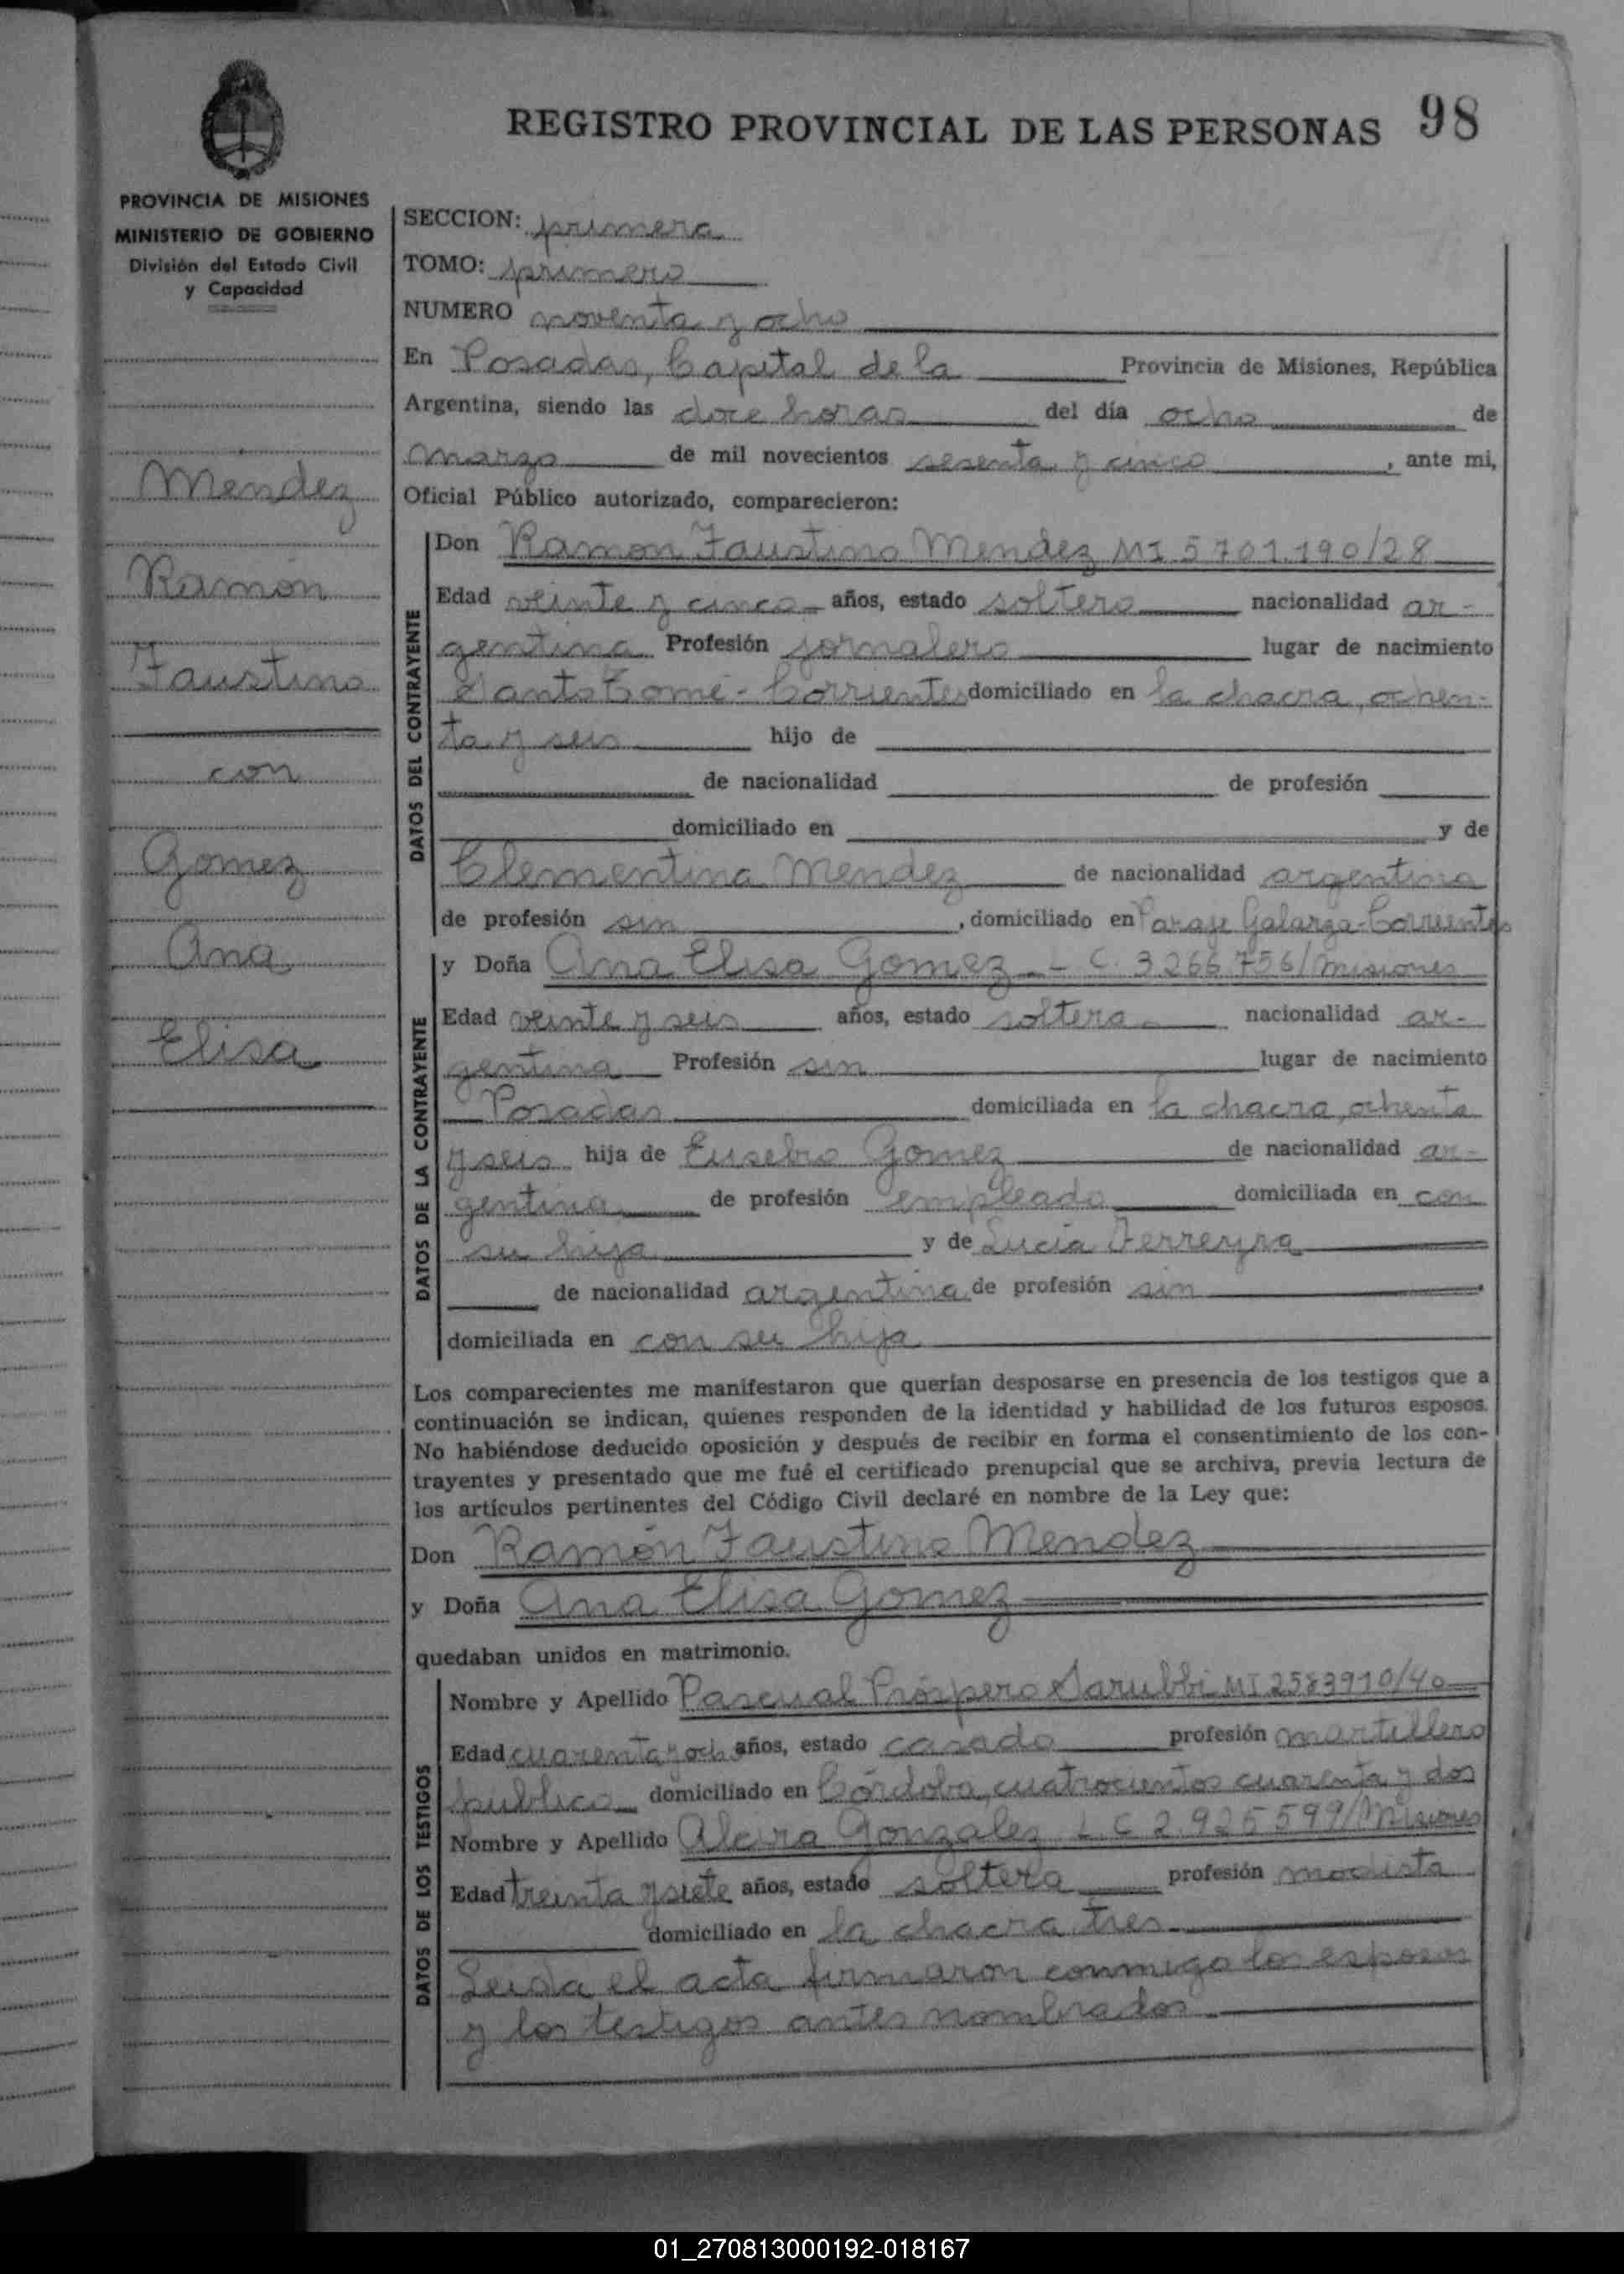 REGISTRO PROVINCIAL DE LAS PERSONAS 98
PROVINCIA DE MISIONES
MINISTERIO DE GOBIERNO
División del Estado Civil
y Capacidad
Mendez
Ramón
Faustino
con
Gomez
Ana
Elisa
SECCION: primera
TOMO: primero
NUMERO noventa y ocho
En Posadas, Capital de la Provincia de Misiones, República
Argentina, siendo las doce horas del día ocho de
marzo de mil novecientos sesenta y cinco, ante mi,
Oficial Público autorizado, comparecieron:
DATOS DEL CONTRAYENTE
Don Ramon Faustino Mendez MI 5.701.190/28
Edad veinte y cinco años, estado soltero nacionalidad ar-
gentina Profesión jornalero lugar de nacimiento
Santo Tomé - Corrientes domiciliado en la chacra ochen-
ta y seis hijo de
de nacionalidad de profesión
domiciliado en y de
Clementina Mendez de nacionalidad argentina
de profesión sin, domiciliado en Paraje Galarza-Corrientes
DATOS DE LA CONTRAYENTE
y Doña Ana Elisa Gomez L C. 3.266.756/Misiones
Edad veinte y seis años, estado soltera nacionalidad ar-
gentina Profesión sin lugar de nacimiento
Posadas domiciliada en la chacra ochenta
y seis hija de Eusebio Gomez de nacionalidad ar-
gentina de profesión empleado domiciliada en con
su hija y de Lucia Ferreyra
de nacionalidad argentina de profesión sin
domiciliada en con su hija
Los comparecientes me manifestaron que querían desposarse en presencia de los testigos que a
continuación se indican, quienes responden de la identidad y habilidad de los futuros esposos.
No habiéndose deducido oposición y después de recibir en forma el consentimiento de los con-
trayentes y presentado que me fué el certificado prenupcial que se archiva, previa lectura de
los artículos pertinentes del Código Civil declaré en nombre de la Ley que:
Don Ramón Faustino Mendez
y Doña Ana Elisa Gomez
quedaban unidos en matrimonio.
DATOS DE LOS TESTIGOS
Nombre y Apellido Pascual Próspero Sarubbi MI 2583910/40
Edad cuarenta y ocho años, estado casado profesión martillero
publico domiciliado en Córdoba, cuatrocientos cuarenta y dos
Nombre y Apellido Alcira Gonzalez L.C 2.925.599/Misiones
Edad treinta y siete años, estado soltera profesión modista
domiciliado en la chacra tres
Leida el acta firmaron conmigo los esposos
y los testigos antes nombrados
01_270813000192-018167